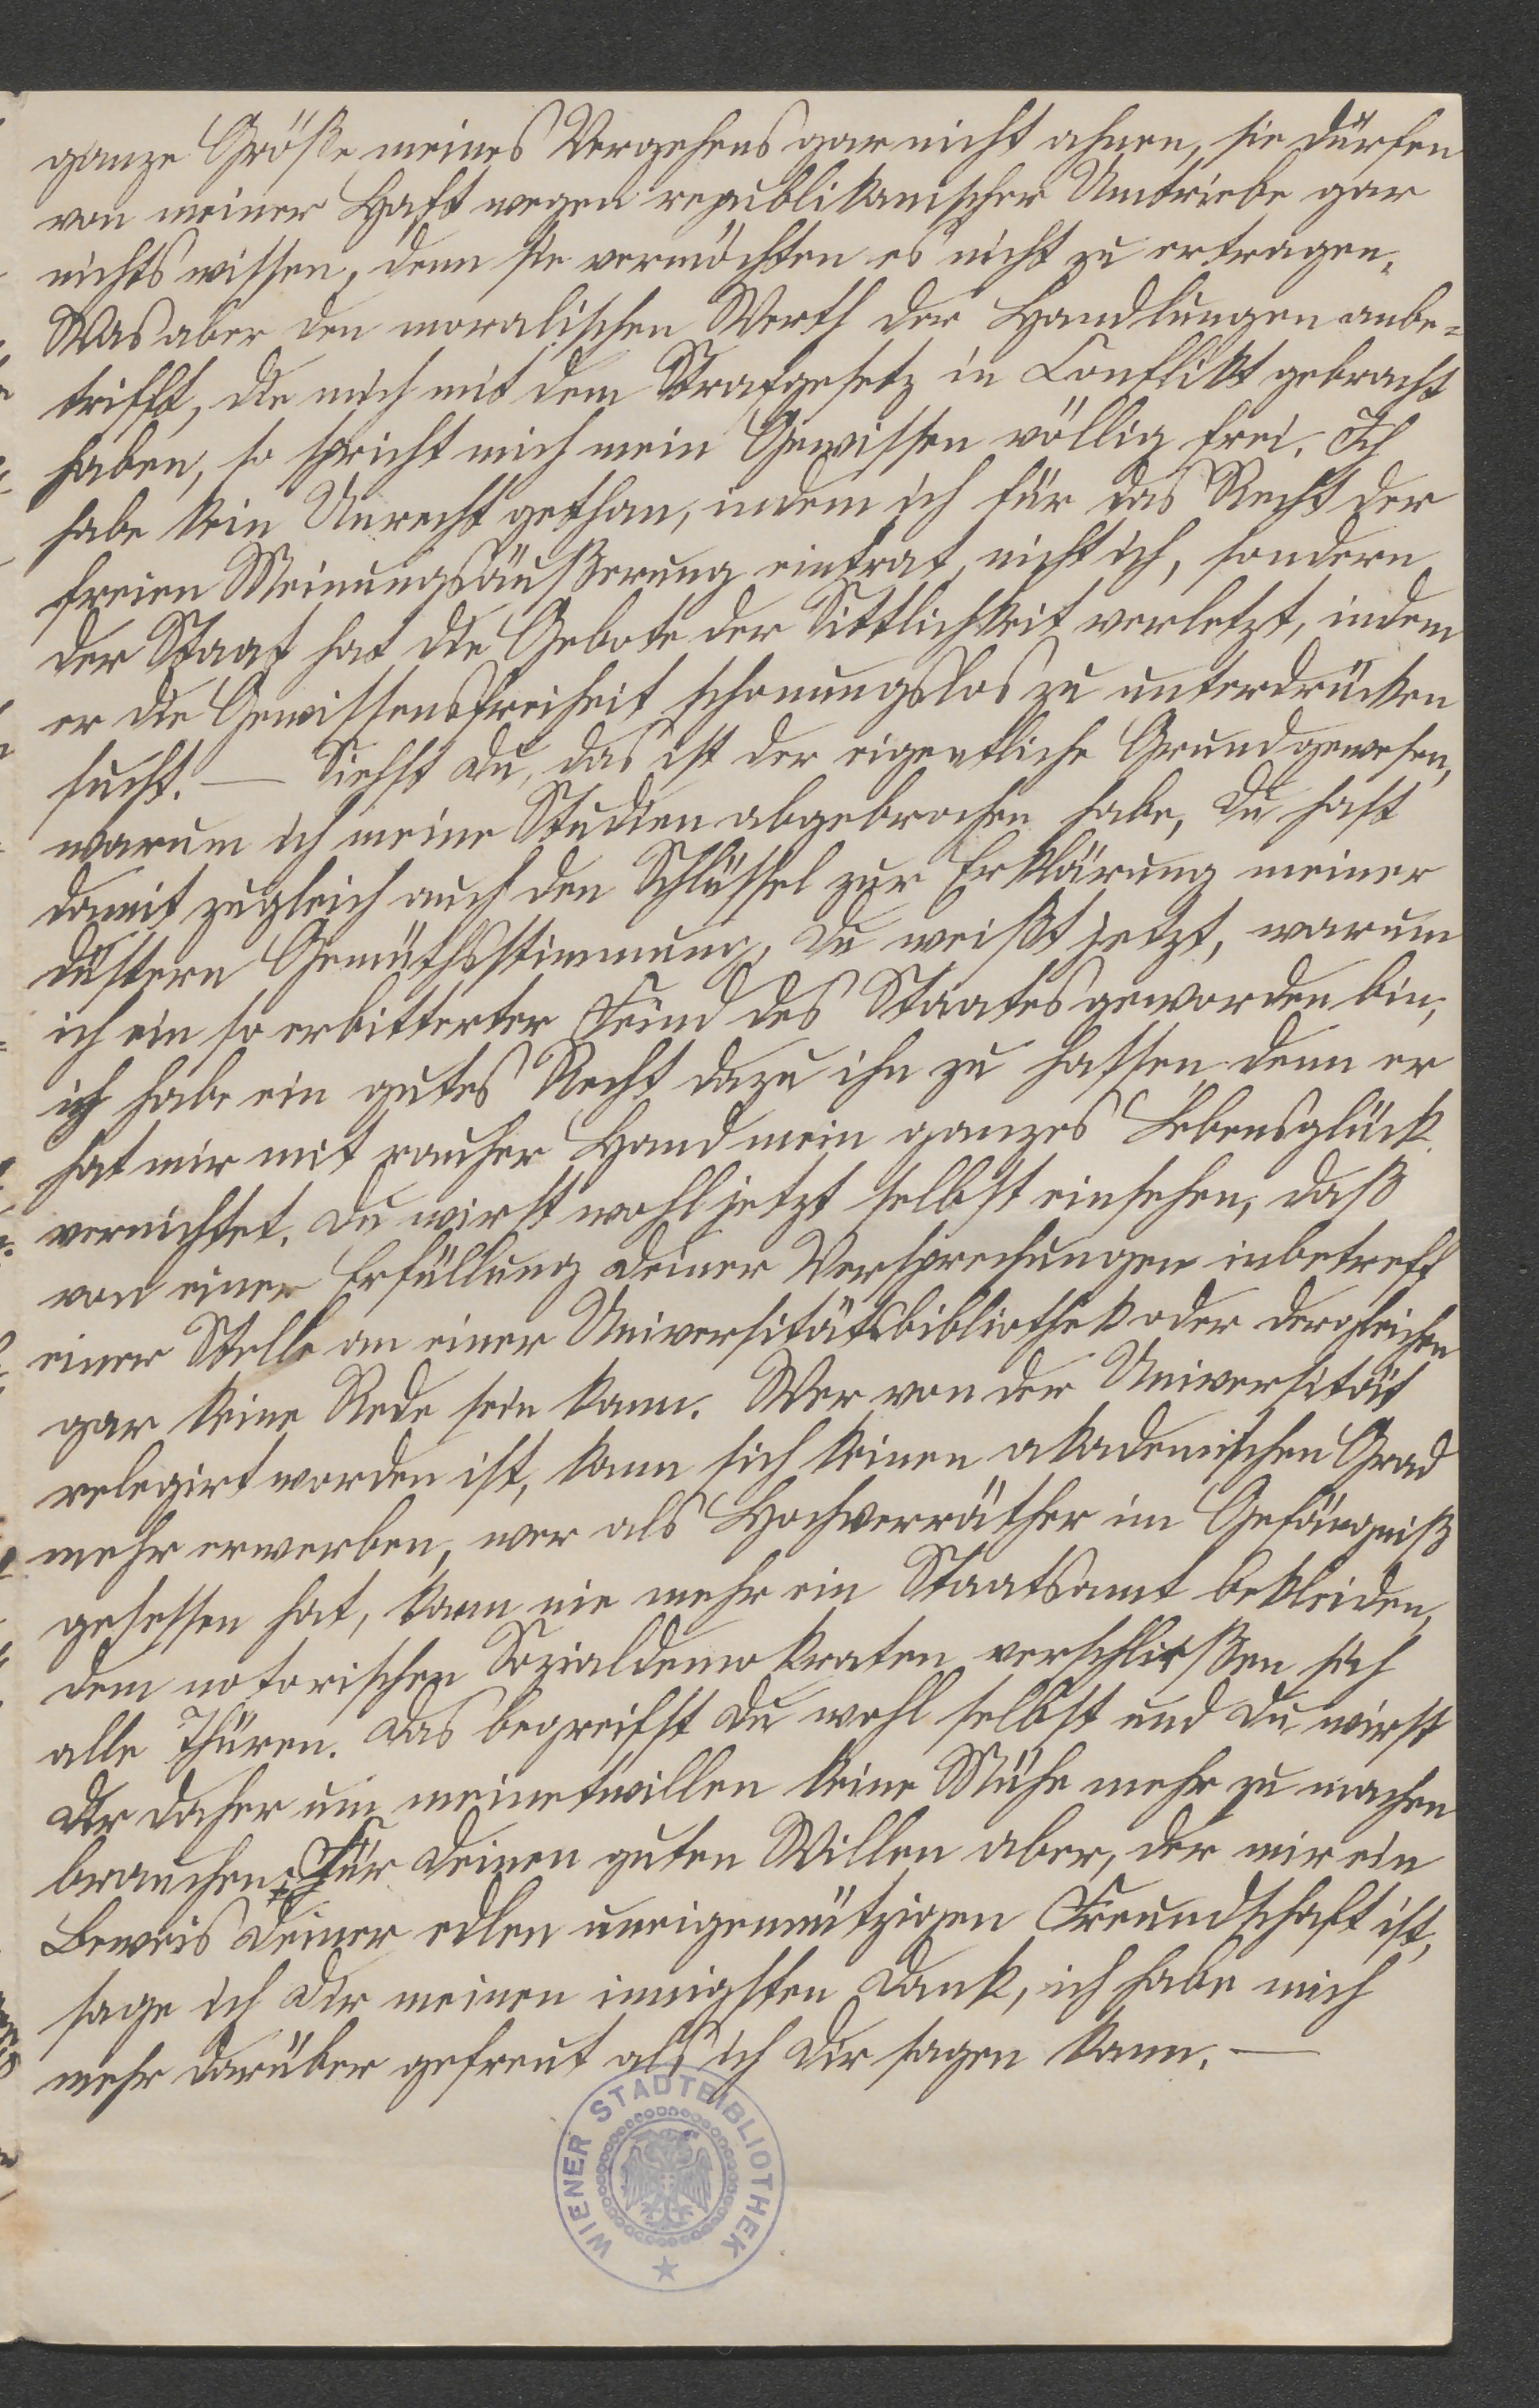 ganze Größe meines Vergehens gar nicht ahnen, sie dürfen
von meiner Haft wegen republikanischer Umtriebe gar
nichts wissen, denn sie vermöchten es nicht zu ertragen.
Was aber den moralischen Werth der Handlungen anbe=
trifft, die mich mit dem Strafgesetz in Conflikt gebracht
haben, so spricht mich mein Gewissen völlig frei. Ich
habe kein Unrecht gethan, indem ich für das Recht der
freien Meinungsäußerung eintrat, nicht ich, sondern
der Staat hat die Gebote der Sittlichkeit verletzt, indem
er die Gewissensfreiheit schonungslos zu unterdrücken
sucht. — Siehst du, das ist der eigentliche Grund gewesen,
warum ich meine Studien abgebrochen habe, Du hast
damit zugleich auch den Schlüssel zur Erklärung meiner
düstern Gemüthsstimmung, Du weißt jetzt, warum
ich ein so erbitterter Feind des Staates geworden bin,
ich habe ein gutes Recht dazu ihn zu hassen denn er
hat mir mit rauher Hand mein ganzes Lebensglück
vernichtet. Du wirst wohl jetzt selbst einsehen, daß
von einer Erfüllung Deiner Versprechungen inbetreff
einer Stelle an einer Universitätsbibliothek oder dergleichen
gar keine Rede sein kann. Wer von der Universität
relegirt worden ist, kann sich keinen akademischen Grad
mehr erwerben, wer als Hochverräther im Gefängniß
gesessen hat, kann nie mehr ein Staatsamt bekleiden,
dem notorischen Sozialdemokraten verschließen sich
alle Thüren. Das begreifst Du wohl selbst und Du wirst
Dir daher um meinetwillen keine Mühe mehr zu machen
brauchen. Für Deinen guten Willen aber, der mir ein
Beweis Deiner edlen uneigennützigen Freundschaft ist,
sage ich Dir meinen innigsten Dank, ich habe mich
mehr darüber gefreut als ich Dir sagen kann. —
WIENER STADTBIBLIOTHEK